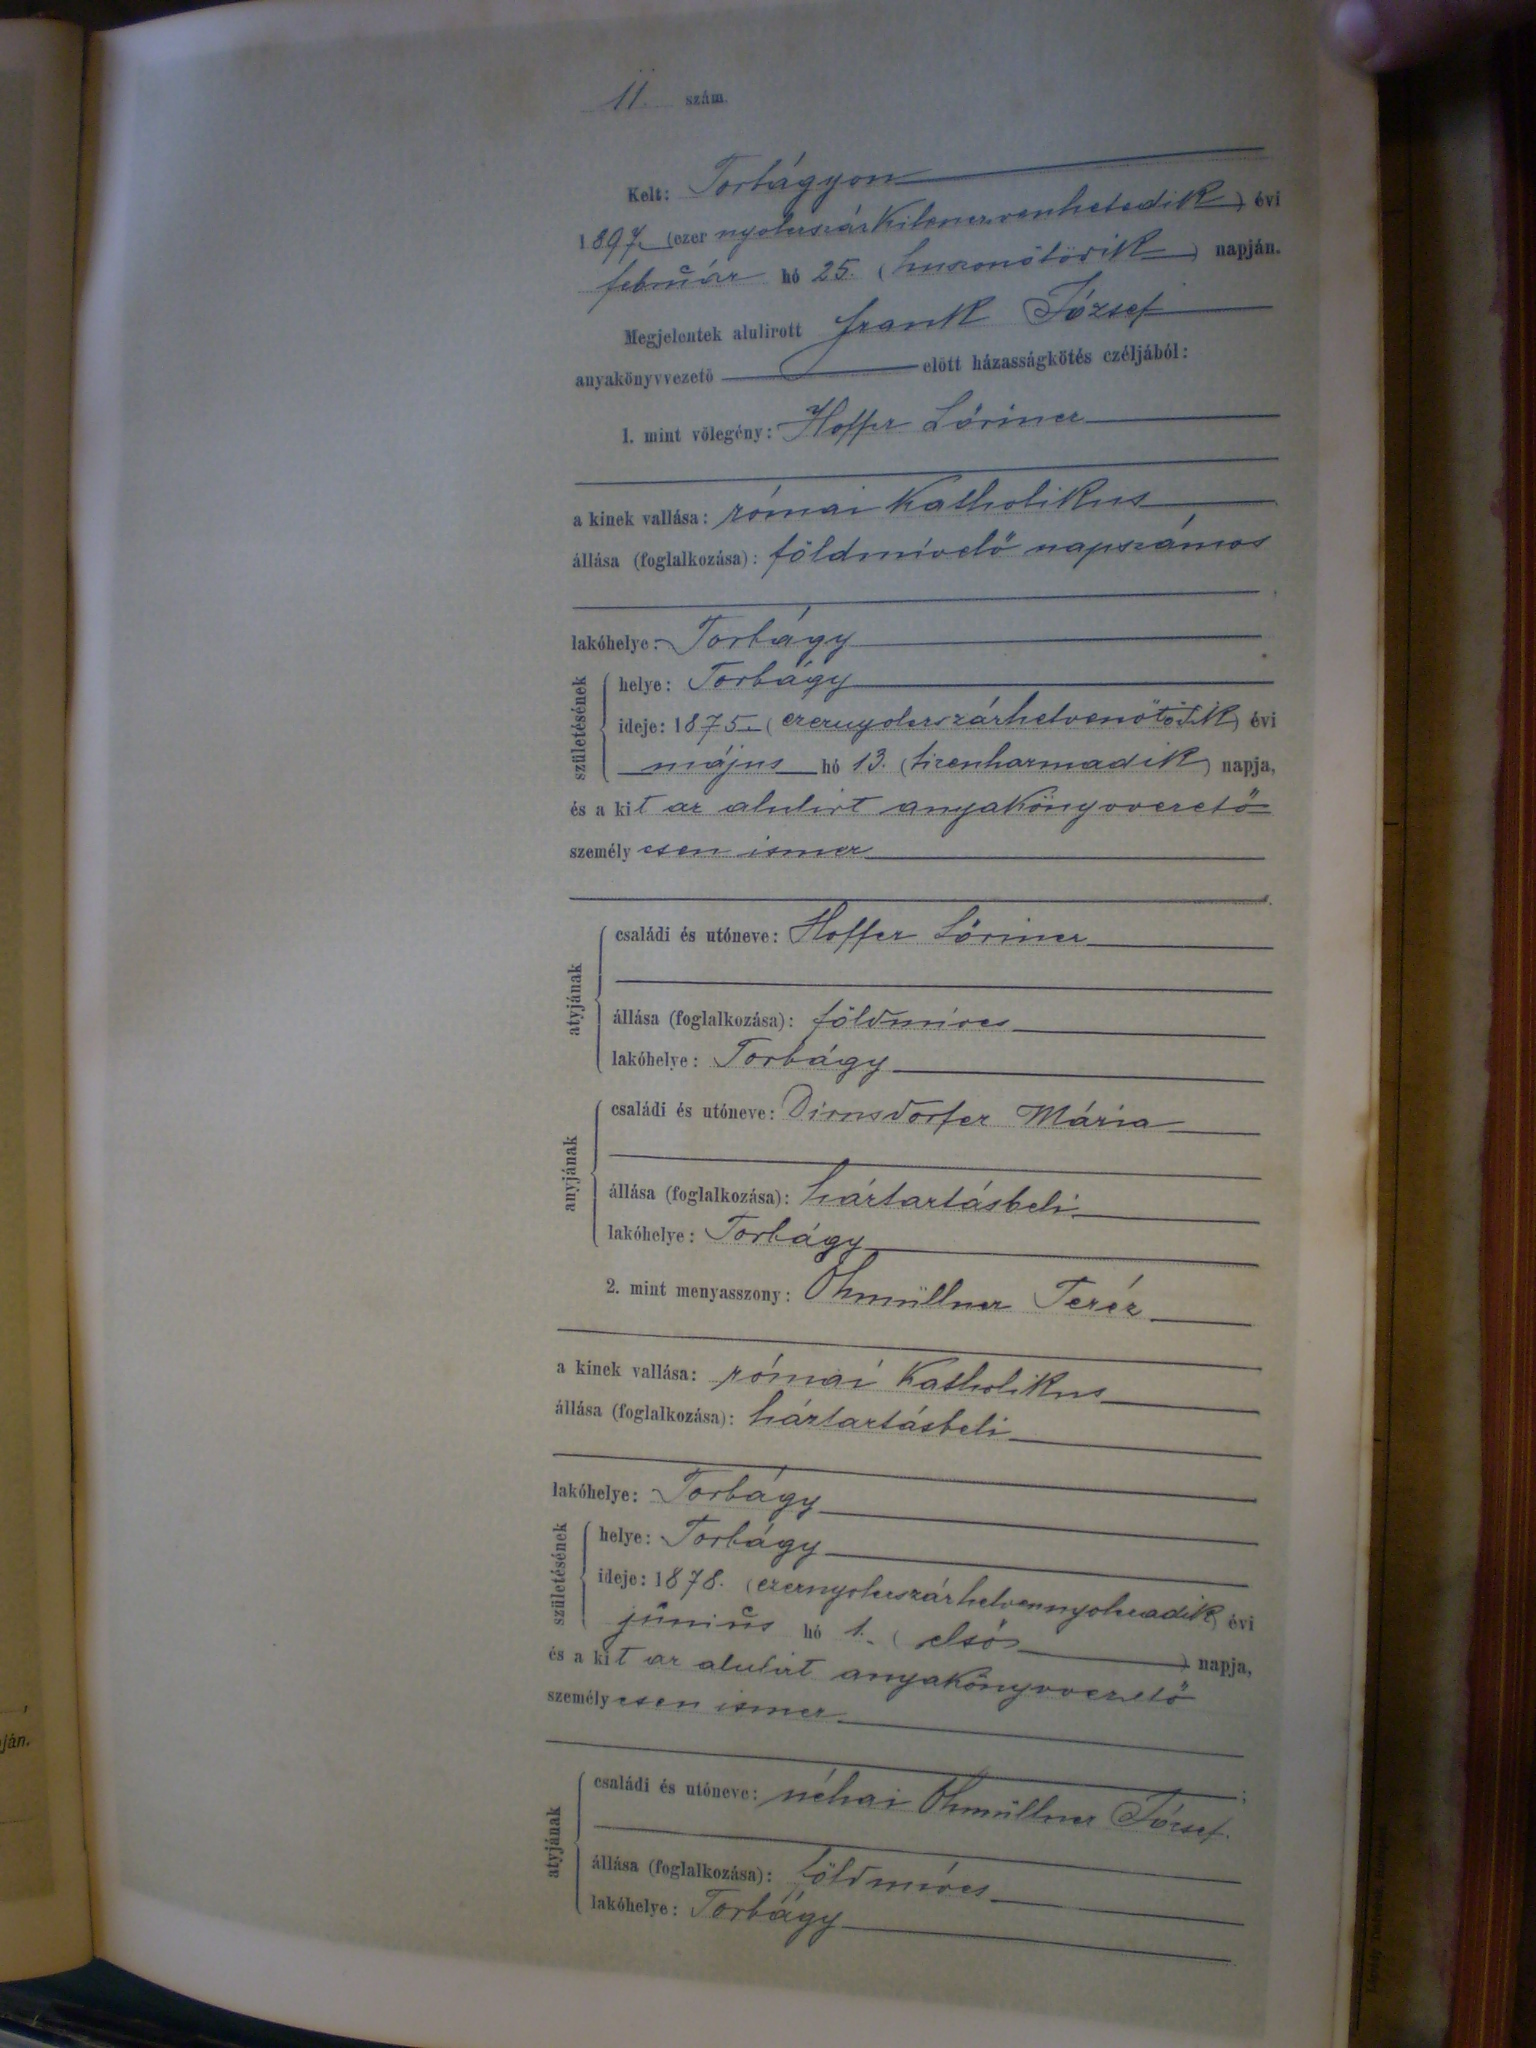 11. szám.
Kelt: Torbágyon
1897. (ezer nyolcszázkilencvenhetedik) évi
február hó 25. (huszonötödik) napján.
Megjelentek alulirott Frank József
anyakönyvvezető előtt házasságkötés czéljából:
1. mint vőlegény: Hoffer Lőrincz
a kinek vallása: római katholikus
állása (foglalkozása): földmívelő napszámos
lakóhelye: Torbágy
születésének
helye: Torbágy
ideje: 1875. (ezernyolcszázhetvenötödik) évi
május hó 13. (tizenharmadik) napja,
és a kit az alulirt anyakönyvvezető
személyesen ismer
atyjának
családi és utóneve: Hoffer Lőrincz
állása (foglalkozása): földmíves
lakóhelye: Torbágy
anyjának
családi és utóneve: Dirnsdorfer Mária
állása (foglalkozása): háztartásbeli
lakóhelye: Torbágy
2. mint menyasszony: Ohmüllner Teréz
a kinek vallása: római katholikus
állása (foglalkozása): háztartásbeli
lakóhelye: Torbágy
születésének
helye: Torbágy
ideje: 1878. (ezernyolcszázhetvennyolcadik) évi
június hó 1. (első) napja,
és a kit az alulirt anyakönyvvezető
személyesen ismer
;
atyjának
családi és utóneve: néhai Ohmüllner József.
állása (foglalkozása): földmíves
lakóhelye: Torbágy
ján.